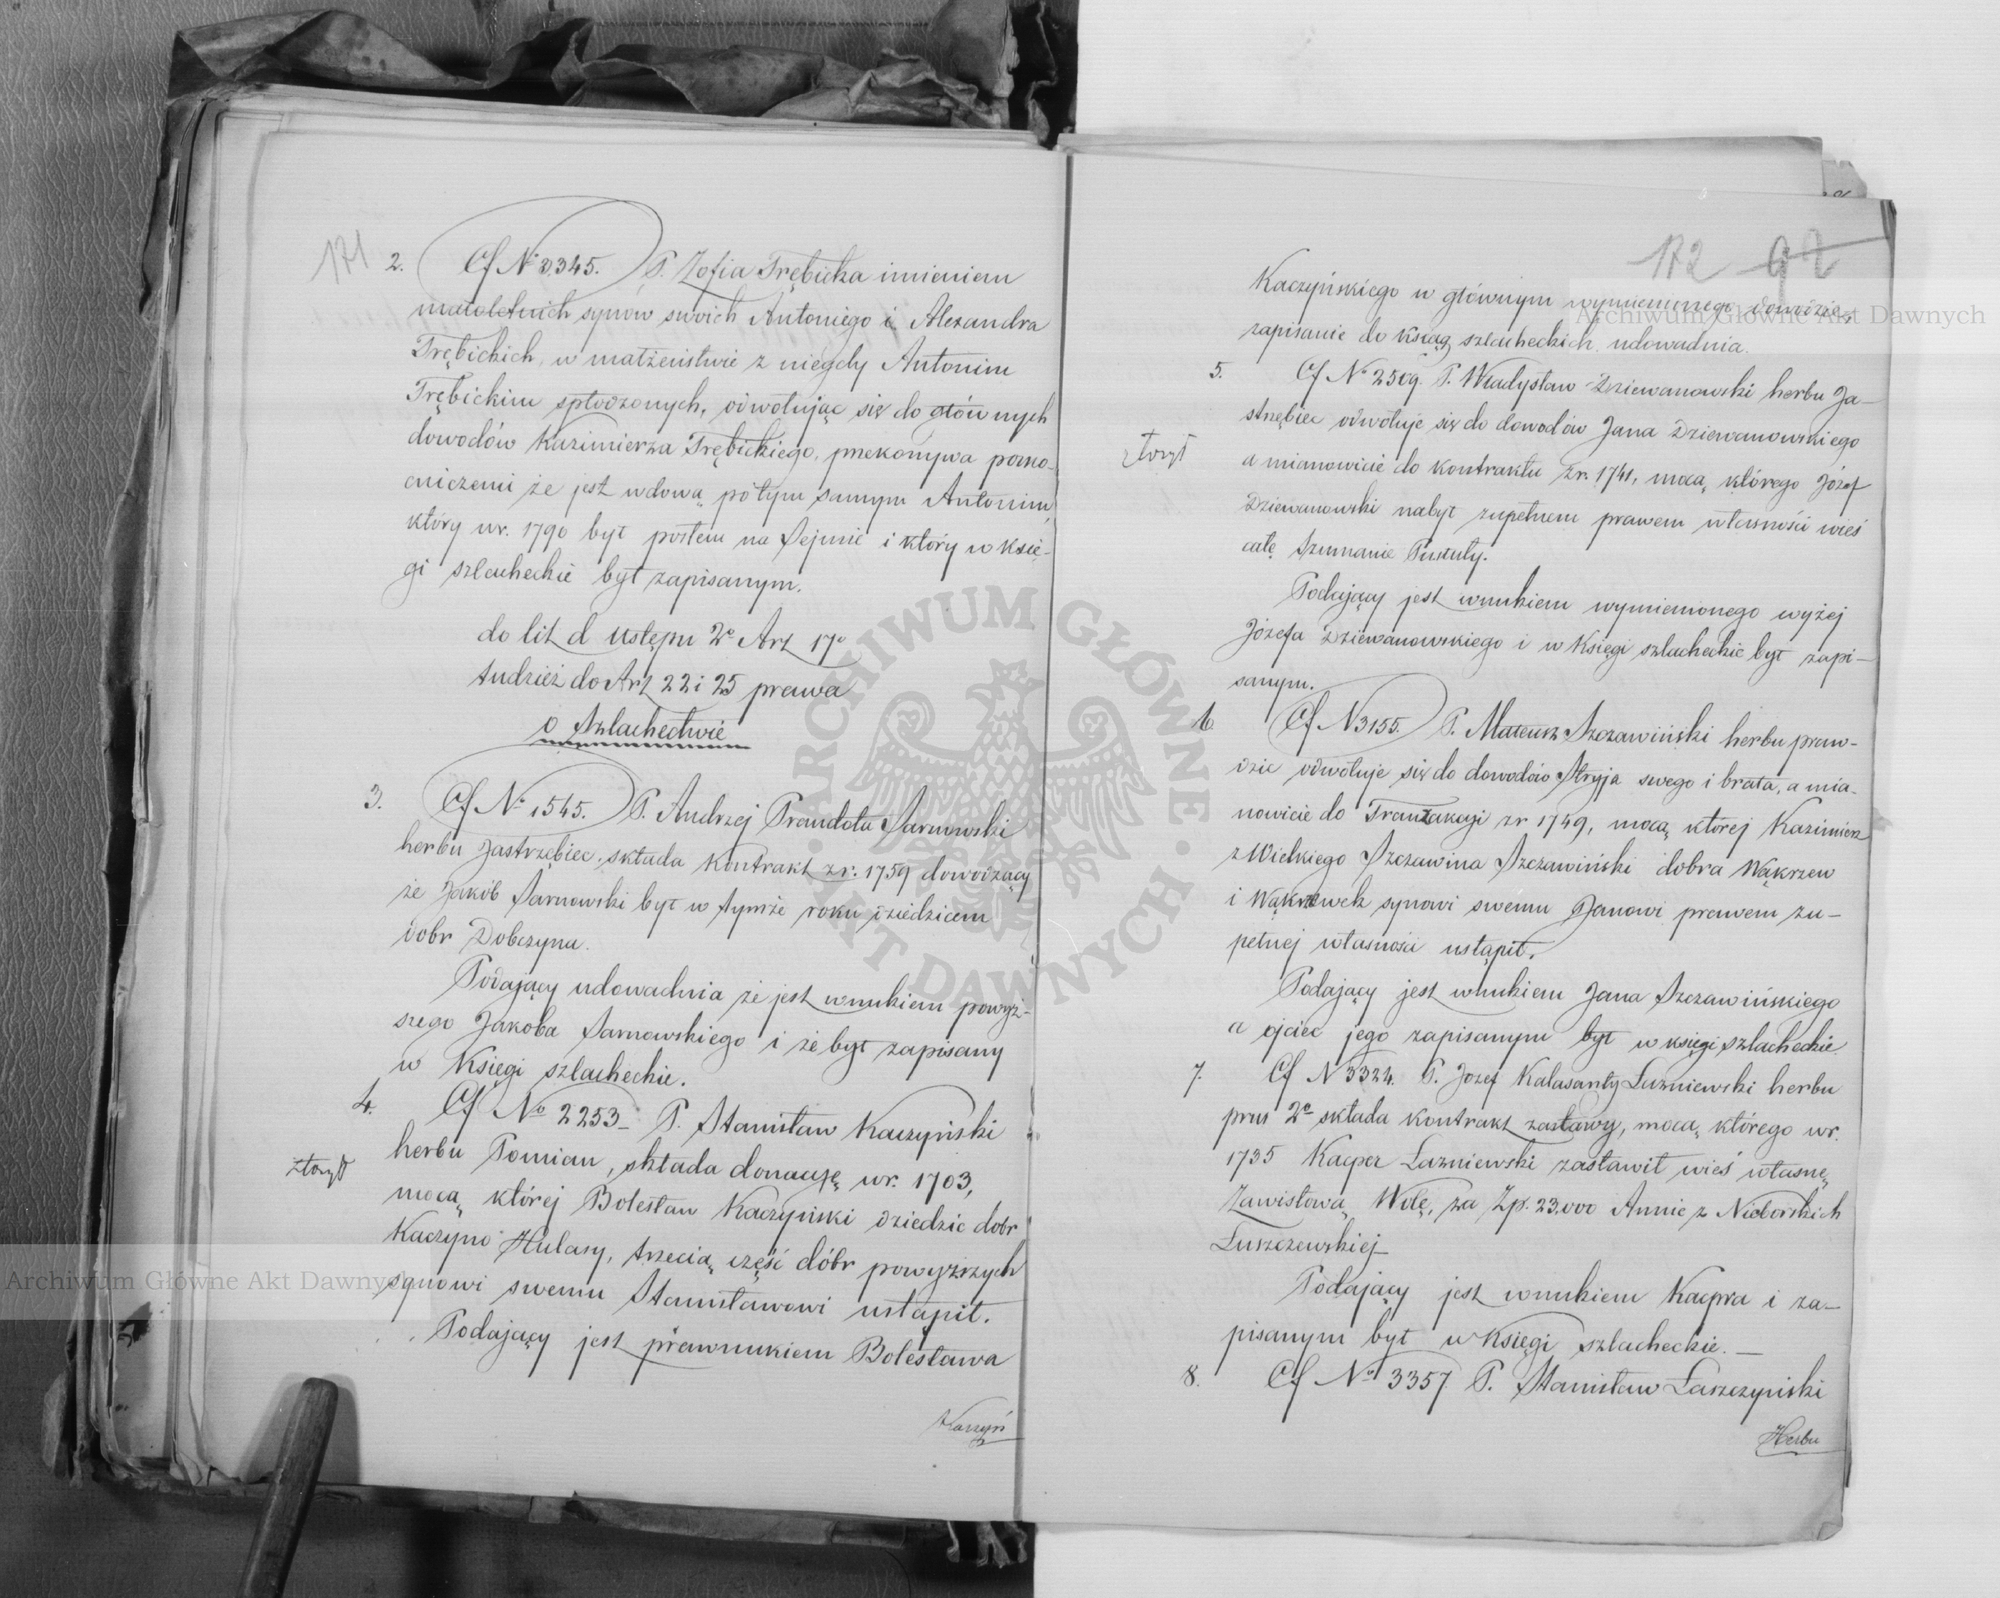 171
2. Cf No 3,345. P. Zofia Trębicka imieniem
małoletnich synów swoich Antoniego i Alexandra
Trębickich, w małżeństwie z niegdy Antonim
Trębickim spłodzonych, odwołując się do głównych
dowodów Kazimierza Trębickiego, przekonywa pomo-
cniczemi że jest wdową po tym samym Antonim,
który w r. 1790 był posłem na Sejmie i który w Księ-
gi szlacheckie był zapisanym.
do lit d ustępu 2o Art 17o
tudzież do Art 22 i 25 prawa
o Szlachectwie
3. Cf No 1545. P. Andrzej Prandota Sarnowski
herbu Jastrzębiec, składa kontrakt z r. 1759 dowodzący
że Jakób Sarnowski był w tymże roku dziedzicem
dobr Dobczyna.
Podający udowadnia że jest wnukiem powyż-
szego Jakoba Sarnowskiego i że był zapisany
w Księgi szlacheckie.
4. Cf No 2253_ P. Stanisław Kaczyński
herbu Pomian, składa donacyę w r. 1703,
złożył
mocą której Bolesław Kaczyński dziedzic dobr
Kaczyno Hulasy, trzecią część dóbr powyższych
synowi swemu Stanisławowi ustąpił.
Podający jest prawnukiem Bolesława
Kaczyń
172 92
Kaczyńskiego w głównym wymienionego dowodzie,
zapisanie do ksiąg szlacheckich udowadnia.
5. Cf No 2509. P. Władysław Dziewanowski herbu Ja-
strzębiec odwołuje się do dowodów Jana Dziewanowskiego
złożył
a mianowicie do kontraktu z r. 1741, mocą którego Józef
Dziewanowski nabył zupełnem prawem własności wieś
całę Szumanie Pustuły.
Podający jest wnukiem wymienionego wyżej
Józefa Dziewanowskiego i w Księgi szlacheckie był zapi-
sanym.
6 Cf N 3155. P. Mateusz Szczawiński herbu praw-
dzic odwołuje się do dowodów Stryja swego i brata, a mia-
nowicie do Tranzakcyi z r 1749, mocą ktorej Kazimierz
z Wielkiego Szczawina Szczawiński dobra Wąkrzew
i Wąkrzewek synowi swemu Janowi prawem zu-
pełnej własności ustąpił.
Podający jest wnukiem Jana Szczawińskiego
a ojciec jego zapisanym był w księgi szlacheckie.
7. Cf N 3324. P. Jozef Kalasanty Łuzniewski herbu
prus 2o składa kontrakt zastawy, mocą którego w r.
1735 Kacper Łuzniewski zastawił wieś własnę
Zawisłową Wolę, za Zp. 23.000 Annie z Nieborskich
Łuszczewskiej_
Podający jest wnukiem Kacpra i za-
pisanym był w Księgi szlacheckie. _
8. Cf No 3357 P. Stanisław Łaszczyński
Herbu
Archiwum Główne Akt Dawnych
Archiwum Główne Akt Dawnych
ARCHIWUM GŁÓWNE · AKT DAWNYCH ·